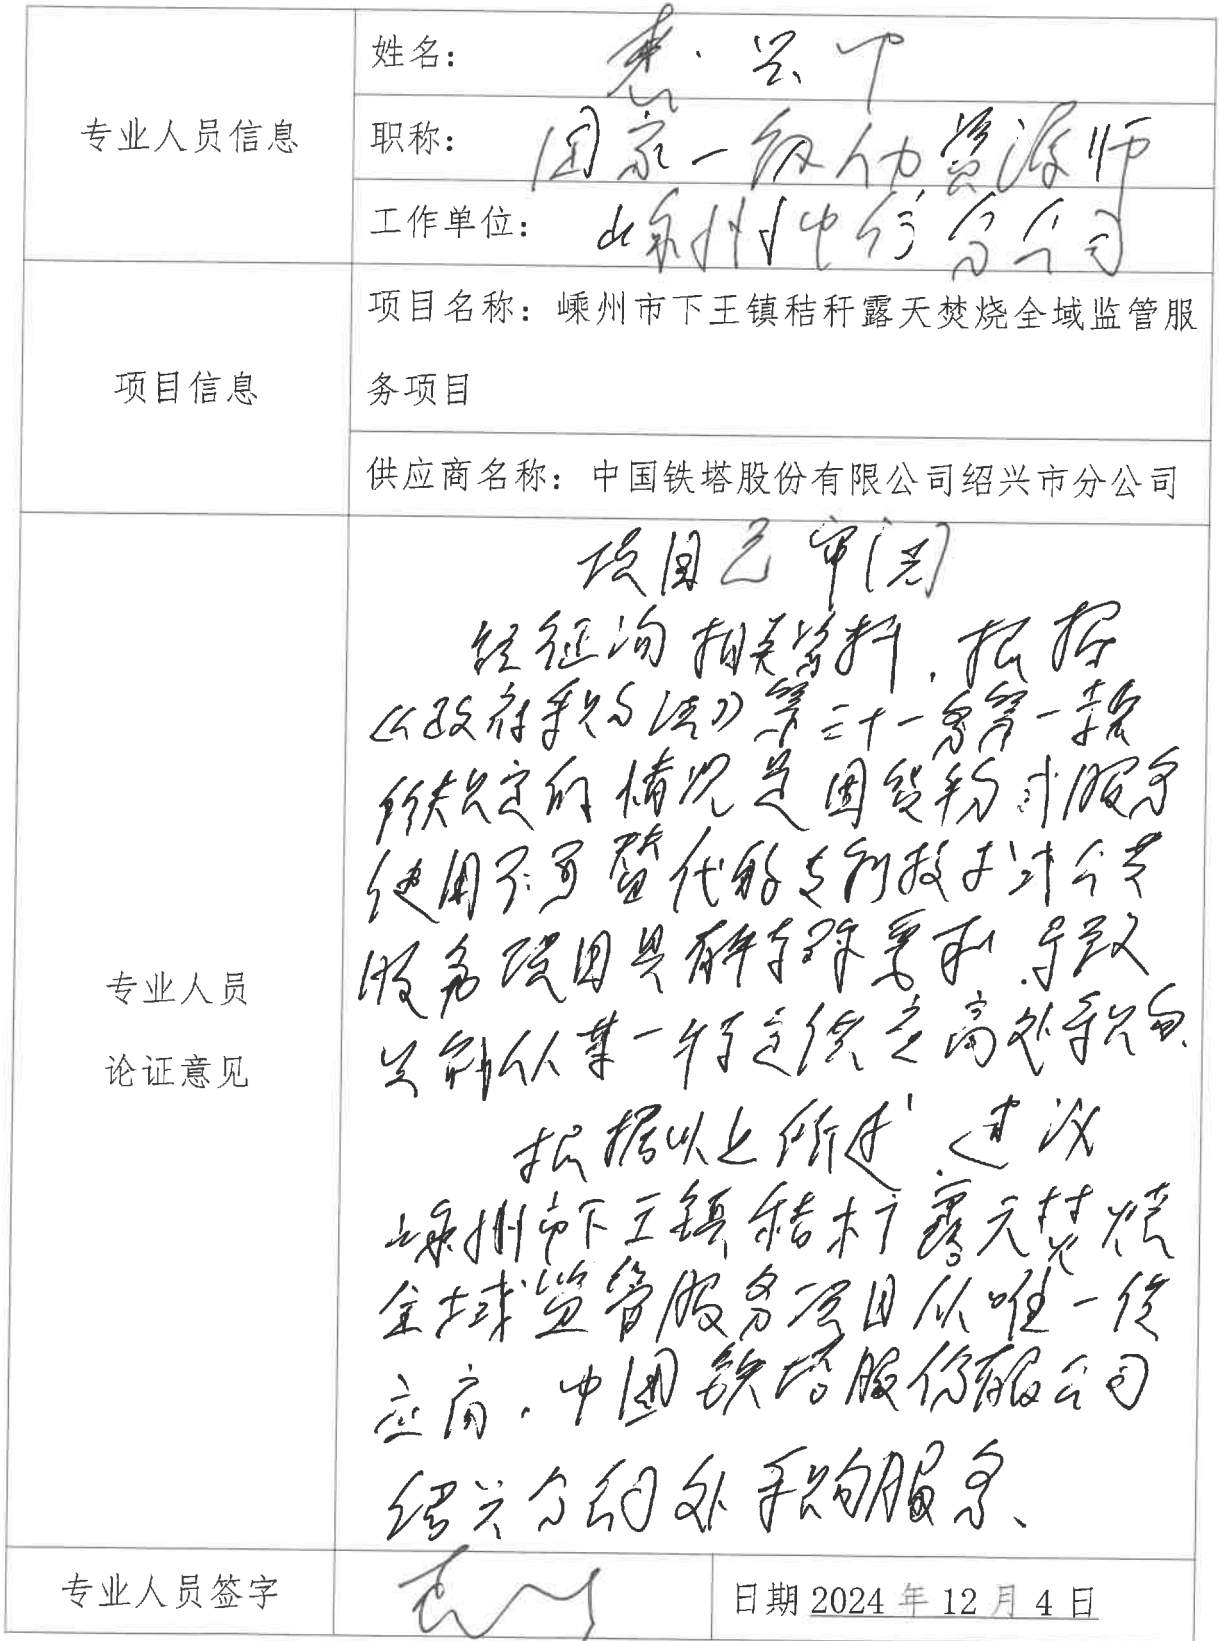 专业人员信息
姓名：
职称：国家一级人力资源师
工作单位：嵊州中行分公司
项目信息
项目名称：嵊州市下王镇秸秆露天焚烧全域监管服
务项目
供应商名称：中国铁塔股份有限公司绍兴市分公司
专业人员
论证意见
项目已审阅
经征询相关资料，根据
《政府采购法》第三十一条第一款
所规定的情况是因货物或服务
使用不可替代的专利技术或公共
服务项目具有特殊要求，导致
只能从某一特定供应商处采购。
根据以上所述 建议
嵊州市下王镇秸杆露天焚烧
全域监管服务项目从唯一供
应商，中国铁塔股份有限公司
绍兴分公司处采购服务、
专业人员签字
日期 2024 年 12 月 4 日